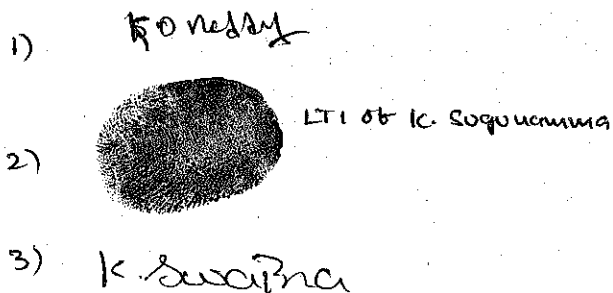 1) K O Reddy
2) LTI of K. Sugunamma
3) K. Swapna